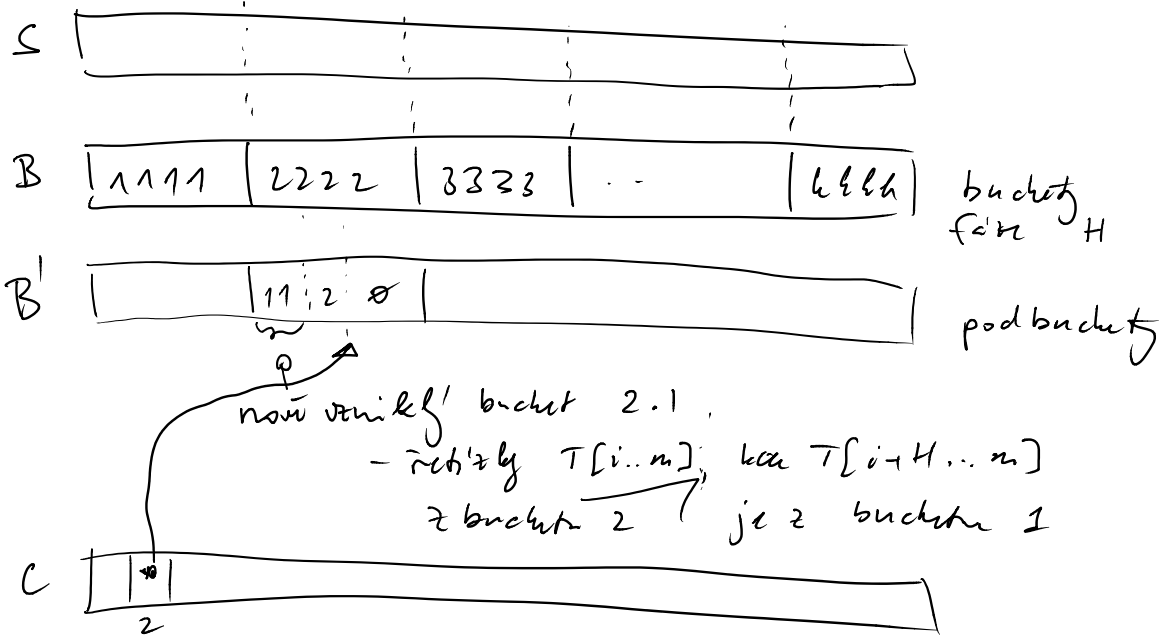 S
B 1111 2222 3333 .. kkkk buckety
fáze H
B' 11 2 ø podbuckety
nově vzniklý bucket 2.1
- řetízky T[i..n], kde T[i+H...n]
z bucketu 2 je z bucketu 1
C
2